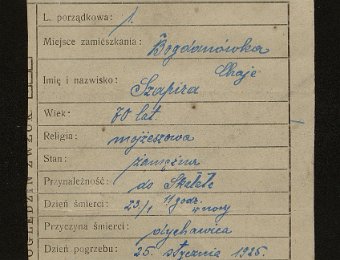 L. porządkowa: 1.
Miejsce zamieszkania: Bogdanówka
Chaje
Imię i nazwisko: Szapira
Wiek: 70 lat
Religia: mojżeszowa
Stan: zamężna
Przynależność: do Skałatu
Dzień śmierci: 23/1 11 godz. w nocy
Przyczyna śmierci: dychawica
Dzień pogrzebu: 25. stycznia 1925.
OGLĘDZIN ZWŁOK